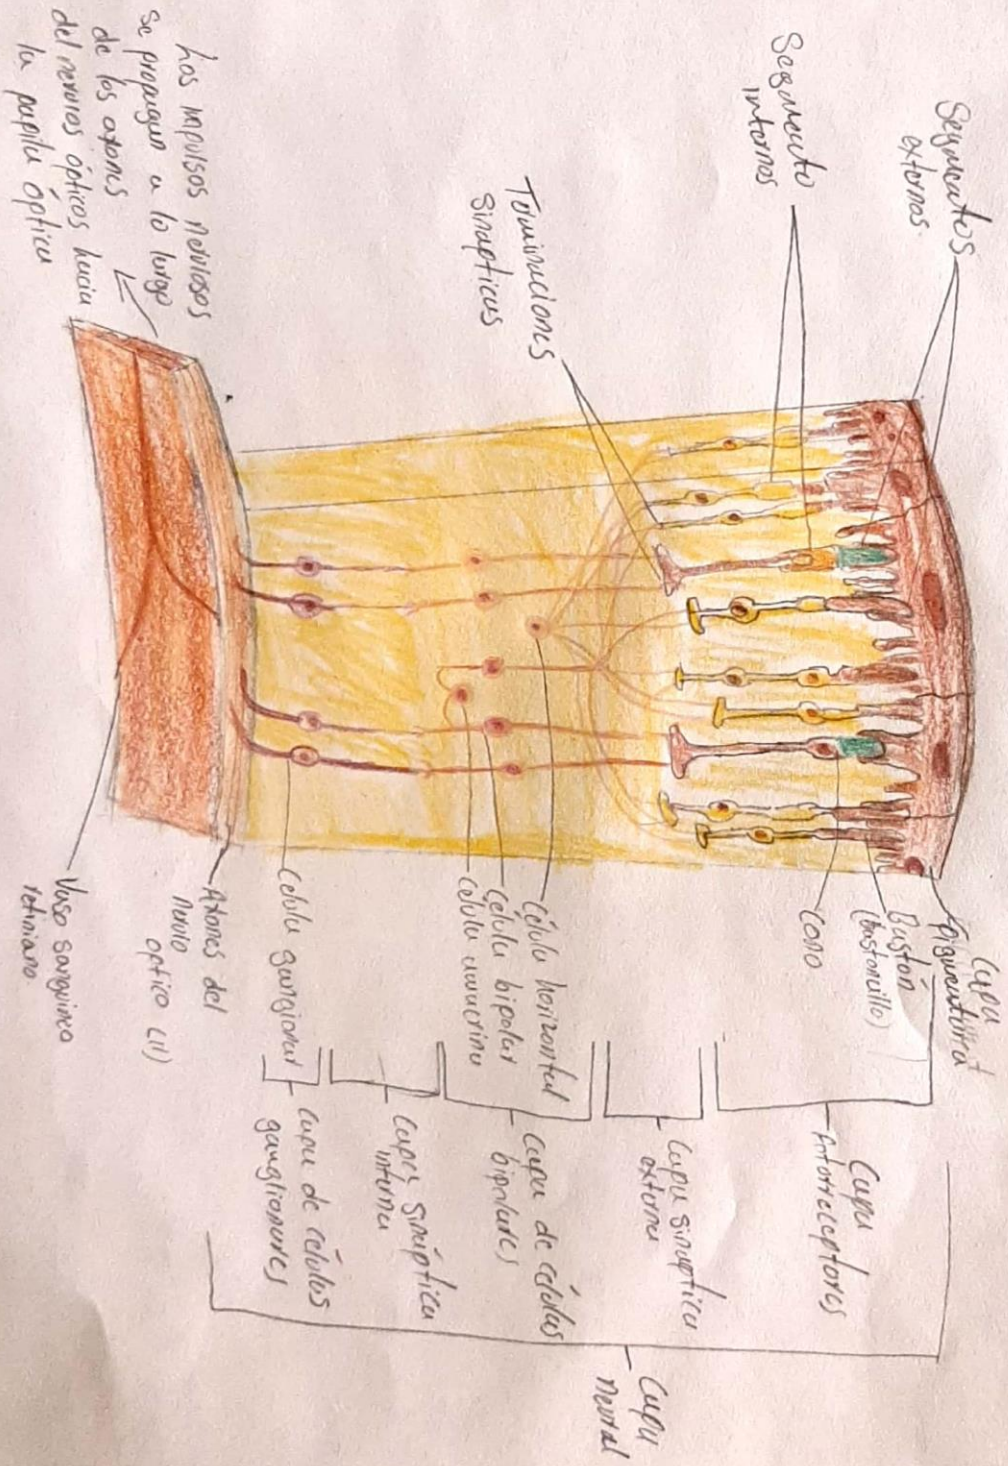 Segmentos
externos
Segmento
internos
Terminaciones
Sinapticas
Los impulsos nerviosos
Se propagan a lo largo
de los axones
del nervios ópticos hacia
la papila óptica
Capa
Pigmentaria
Bastón
(bastoncillo)
Cono
Célula horizontal
Célula bipolar
Célula amacrina
Célula ganglionar
Axones del
nervio
optico (II)
Vaso sanguineo
retiniano
Capa
fotorreceptores
Capa sinaptica
externa
Capa de células
bipolares
Capa sináptica
interna
Capa de células
ganglionares
Capa
neural